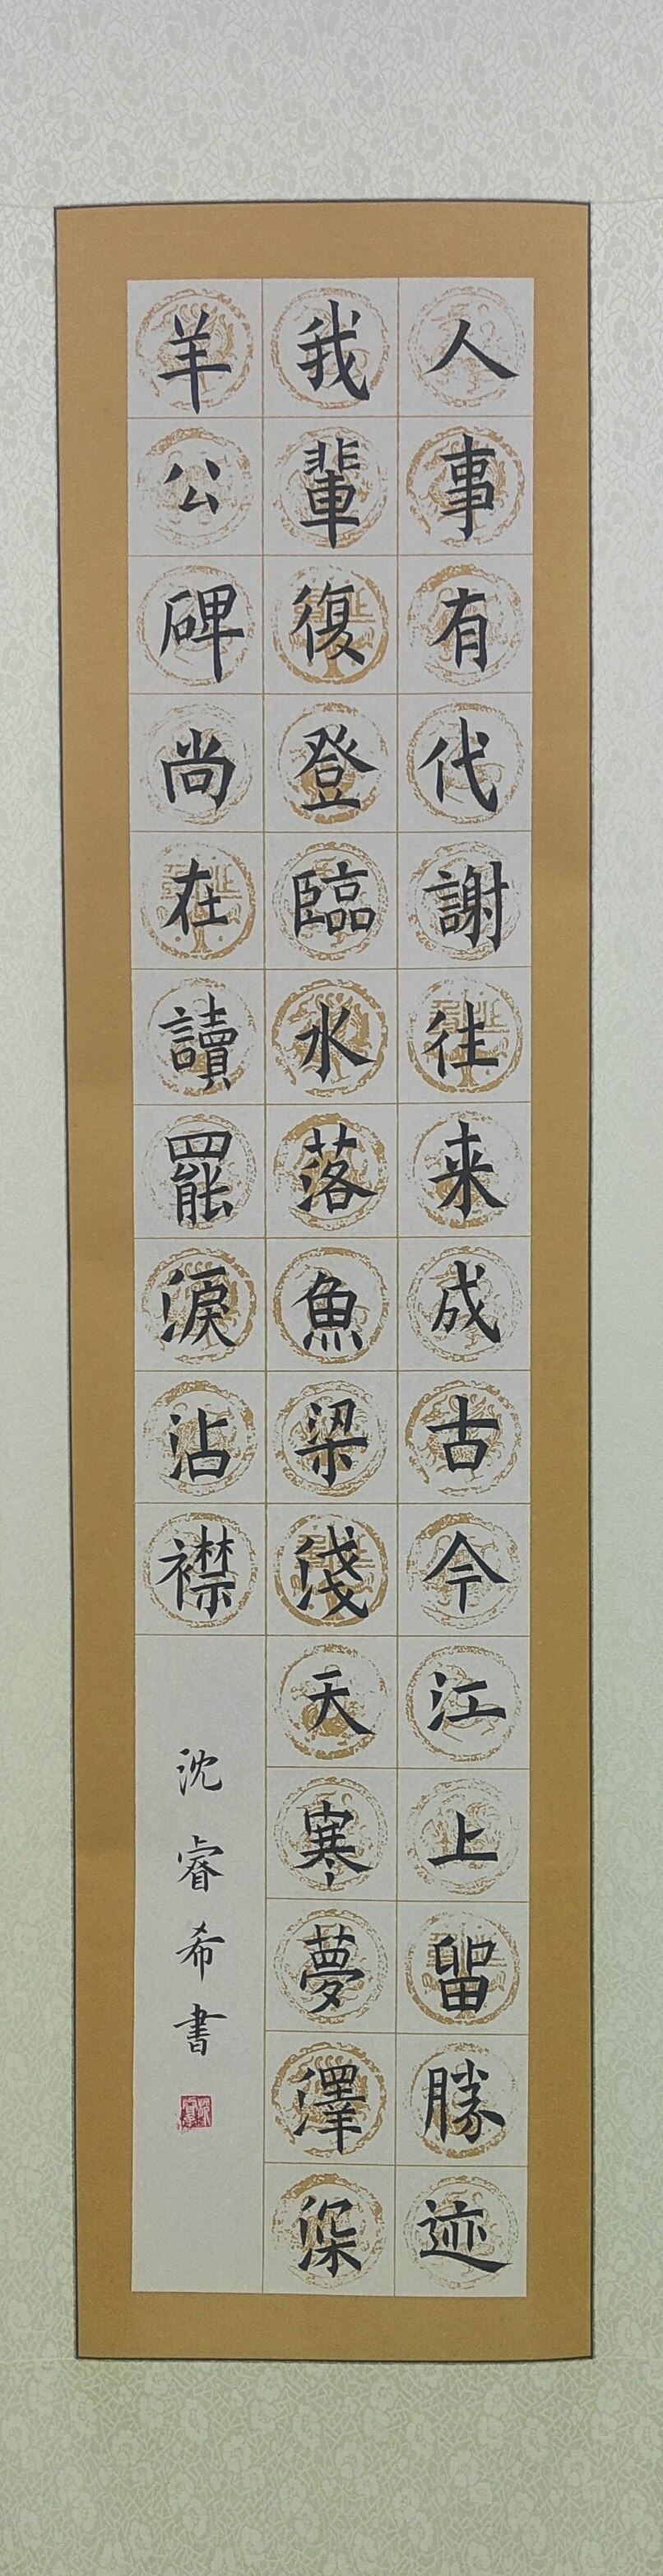 人事有代謝往来成古今江上留勝迹
我輩復登臨水落魚梁淺天寒夢澤深
羊公碑尚在讀罷淚沾襟
沈睿希書